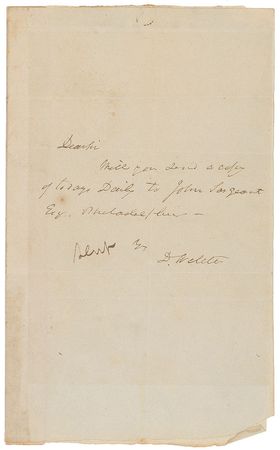 Dear Sir
Will you send a copy
of todays Daily to John Sargeant
Esq. Philadelphia —
Yrs
D. Webster